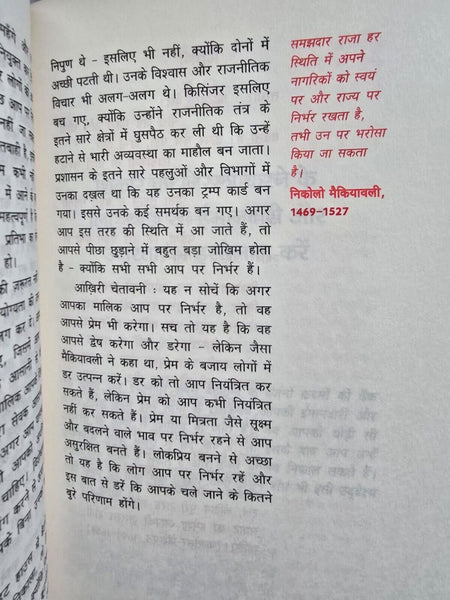 निपुण थे - इसलिए भी नहीं, क्योंकि दोनों में
अच्छी पटती थी। उनके विश्वास और राजनीतिक
विचार भी अलग-अलग थे। किसिंजर इसलिए
बच गए, क्योंकि उन्होंने राजनीतिक तंत्र के
इतने सारे क्षेत्रों में घुसपैठ कर ली थी कि उन्हें
हटाने से भारी अव्यवस्था का माहौल बन जाता।
प्रशासन के इतने सारे पहलुओं और विभागों में
उनका दख़ल था कि यह उनका ट्रम्प कार्ड बन
गया। इससे उनके कई समर्थक बन गए। अगर
आप इस तरह की स्थिति में आ जाते हैं, तो
आपसे पीछा छुड़ाने में बहुत बड़ा जोखिम होता
है - क्योंकि सभी सभी आप पर निर्भर हैं।
आख़िरी चेतावनी : यह न सोचें कि अगर
आपका मालिक आप पर निर्भर है, तो वह
आपसे प्रेम भी करेगा। सच तो यह है कि वह
आपसे द्वेष करेगा और डरेगा - लेकिन जैसा
मैकियावली ने कहा था, प्रेम के बजाय लोगों में
डर उत्पन्न करें। डर को तो आप नियंत्रित कर
सकते हैं, लेकिन प्रेम को आप कभी नियंत्रित
नहीं कर सकते हैं। प्रेम या मित्रता जैसे सूक्ष्म
और बदलने वाले भाव पर निर्भर रहने से आप
असुरक्षित बनते हैं। लोकप्रिय बनने से अच्छा
तो यह है कि लोग आप पर निर्भर रहें और
इस बात से डरें कि आपके चले जाने के कितने
बुरे परिणाम होंगे।
समझदार राजा हर
स्थिति में अपने
नागरिकों को स्वयं
पर और राज्य पर
निर्भर रखता है,
तभी उन पर भरोसा
किया जा सकता
है।
निकोलो मैकियावली,
1469-1527